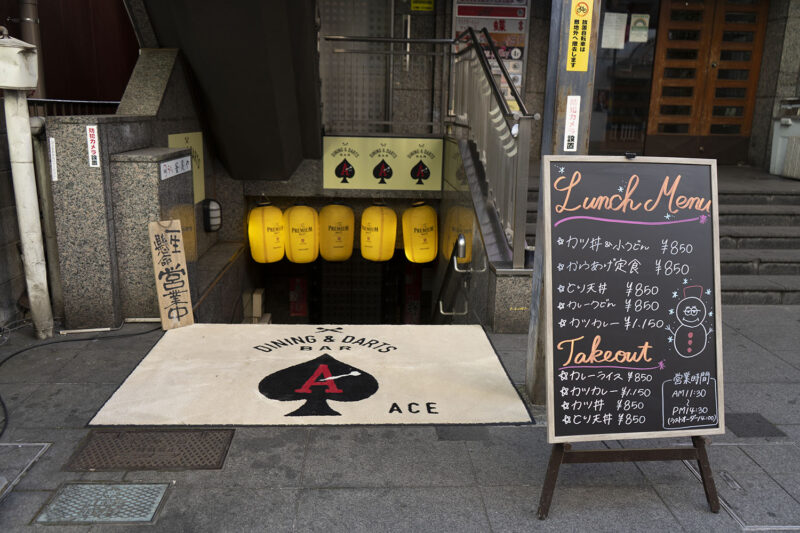 放置自転車は
敷地外へ撤去します
防犯カメラ設置
防犯カメラ設置
一生
懸命
営業中
DINING & DARTS
BAR
DINING & DARTS
BAR
DINING & DARTS
BAR
PREMIUM
PREMIUM
PREMIUM
PREMIUM
PREMIUM
DINING & DARTS
BAR
A
ACE
Lunch Menu
☆カツ丼&小うどん ¥850
☆からあげ定食 ¥850
☆とり天丼 ¥850
☆カレーうどん ¥850
☆カツカレー ¥1.150
Takeout
☆カレーライス ¥850
☆カツカレー ¥1.150
☆カツ丼 ¥850
☆とり天丼 ¥850
営業時間
AM11:30
~
PM14:30
(ラストオーダー14:00)